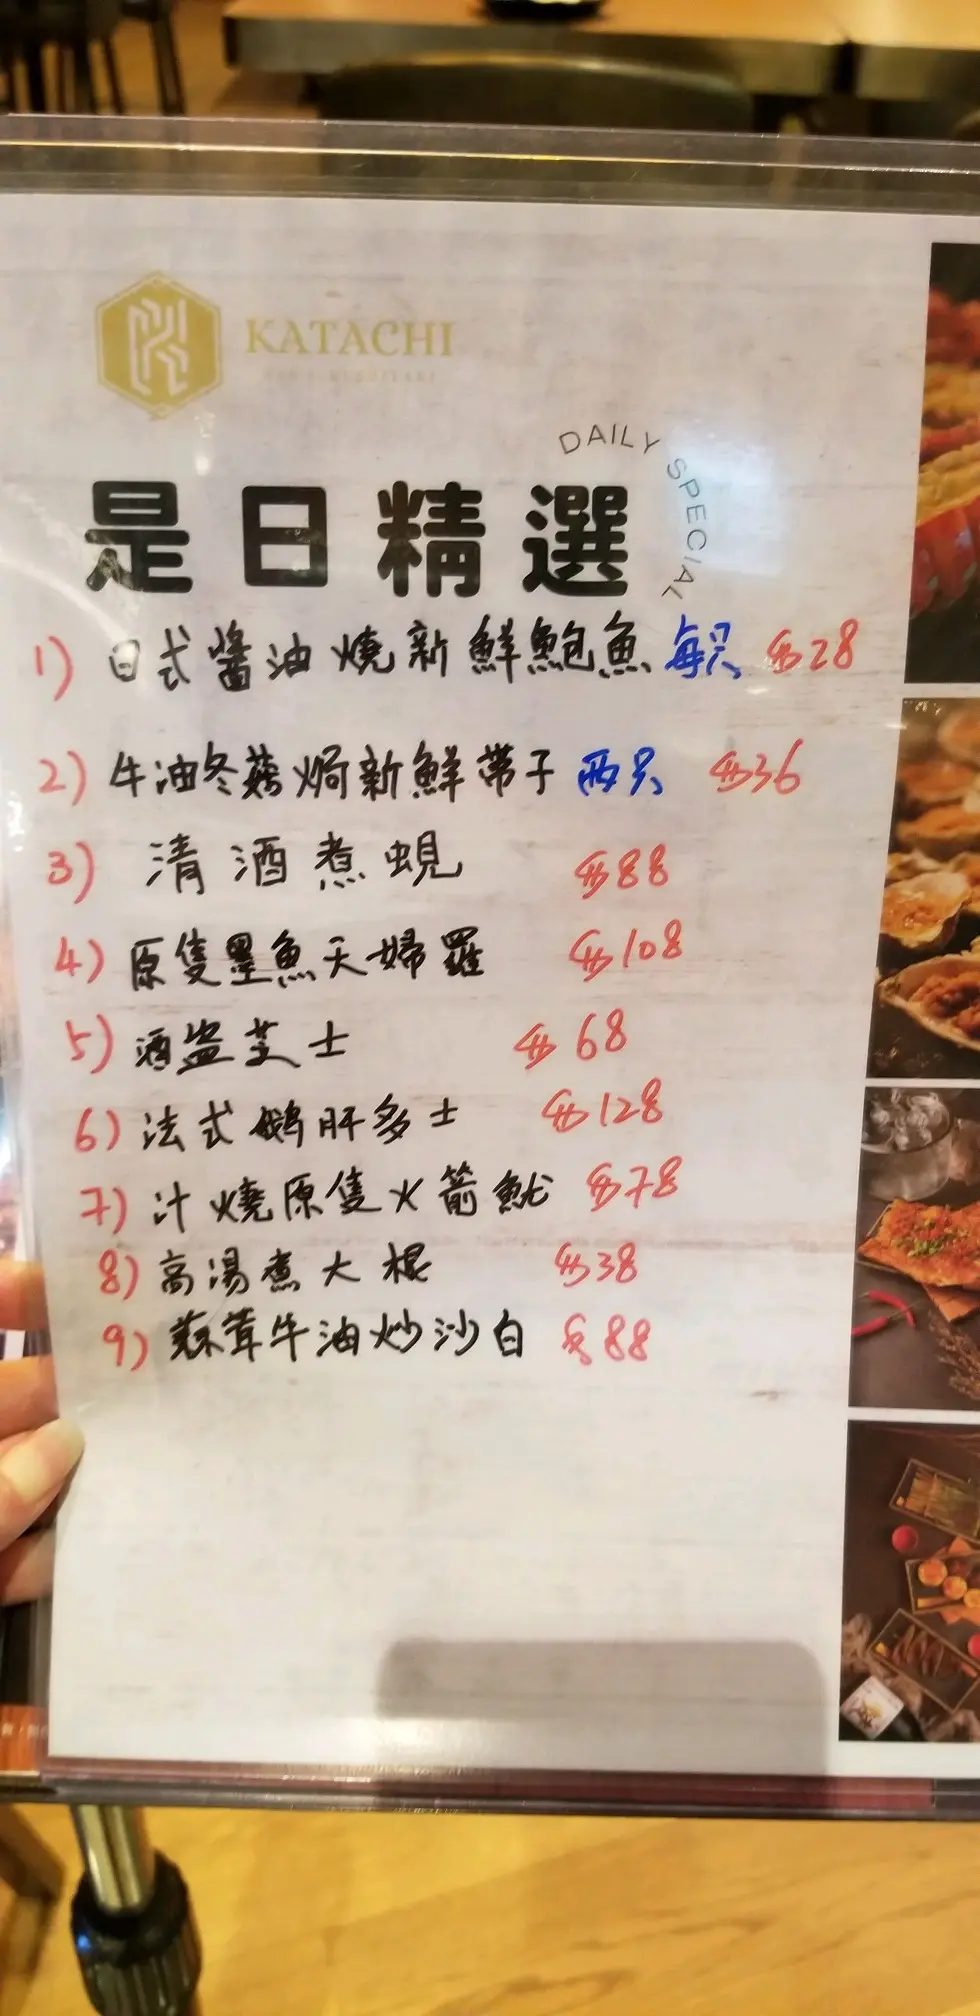 KATACHI
DAILY SPECIAL
是日精選
1) 日式醬油燒新鮮鮑魚 每只 $28
2) 牛油冬菇焗新鮮帶子 两只 $36
3) 清酒煮蜆 $88
4) 原隻墨魚天婦羅 $108
5) 酒盗芝士 $68
6) 法式鵝肝多士 $128
7) 汁燒原隻火箭魷 $78
8) 高湯煮大根 $38
9) 蒜茸牛油炒沙白 $88